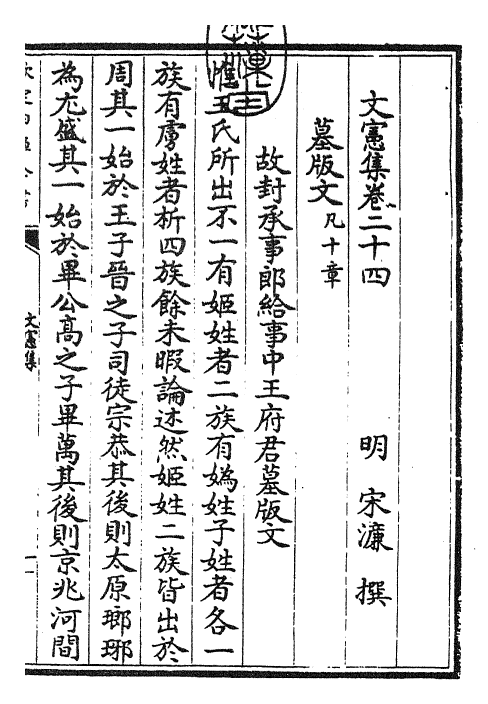 文憲集卷二十四
明 宋濂 撰
墓版文凡十章
故封承事郎給事中王府君墓版文
惟王氏所出不一有姬姓者二族有媯姓子姓者各一
族有虜姓者析四族餘未暇論述然姬姓二族皆出於
周其一始於王子晉之子司徒宗恭其後則太原瑯琊
為尤盛其一始於畢公高之子畢萬其後則京兆河間
文憲集
一